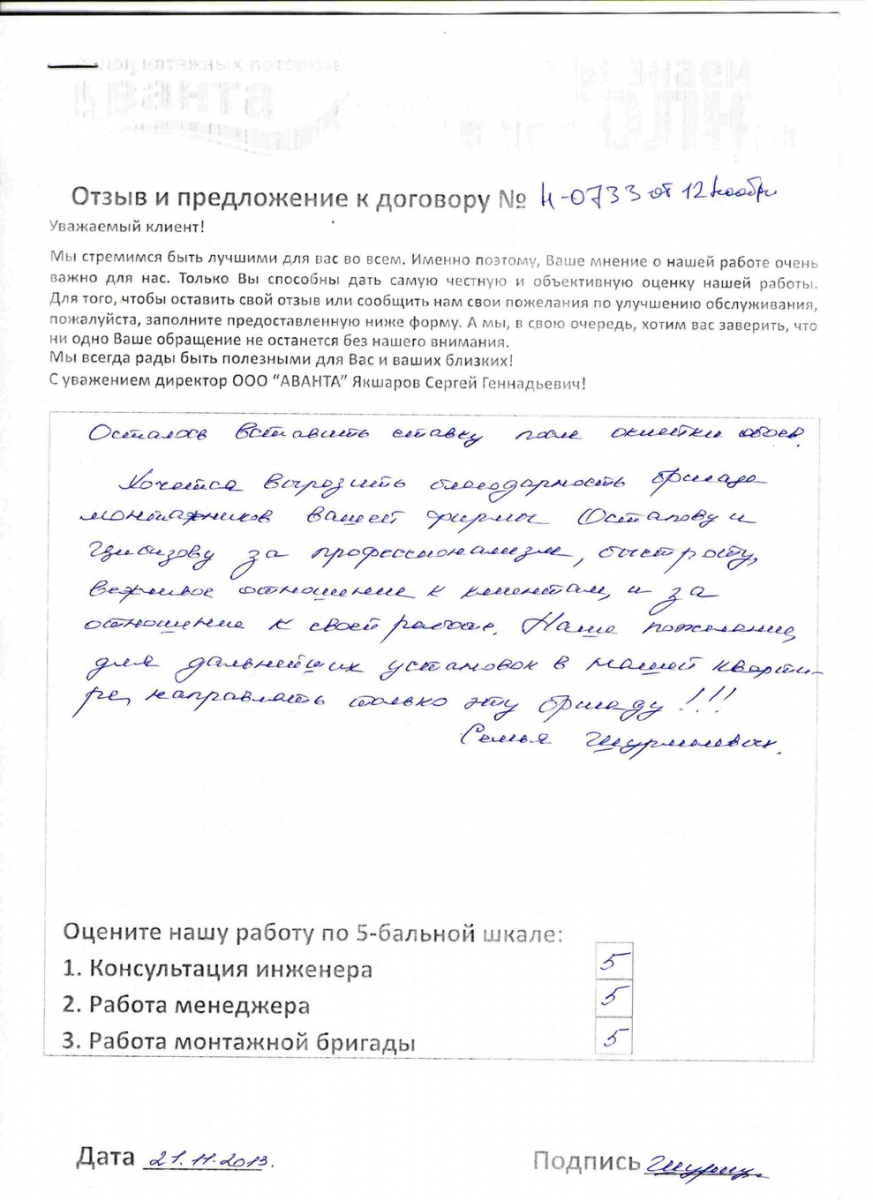 Отзыв и предложение к договору № Н-0733 от 12 ноября
Уважаемый клиент!
Мы стремимся быть лучшими для вас во всем. Именно поэтому, Ваше мнение о нашей работе очень
важно для нас. Только Вы способны дать самую честную и объективную оценку нашей работы.
Для того, чтобы оставить свой отзыв или сообщить нам свои пожелания по улучшению обслуживания,
пожалуйста, заполните предоставленную ниже форму. А мы, в свою очередь, хотим вас заверить, что
ни одно Ваше обращение не останется без нашего внимания.
Мы всегда рады быть полезными для Вас и ваших близких!
С уважением директор ООО "АВАНТА" Якшаров Сергей Геннадьевич!
Осталось вставить ставку после оклейки обоев.
Хочется выразить благодарность бригаде
монтажников вашей фирмы Остапову и
за профессионализм, быстроту,
вежливое отношение к клиентам, и за
отношение к своей работе. Наше пожелание,
для дальнейших установок в нашей кварти-
ре, направлять только эту бригаду!!!
Семья
Оцените нашу работу по 5-бальной шкале:
1. Консультация инженера 5
2. Работа менеджера 5
3. Работа монтажной бригады 5
Дата 21.11.2013. Подпись